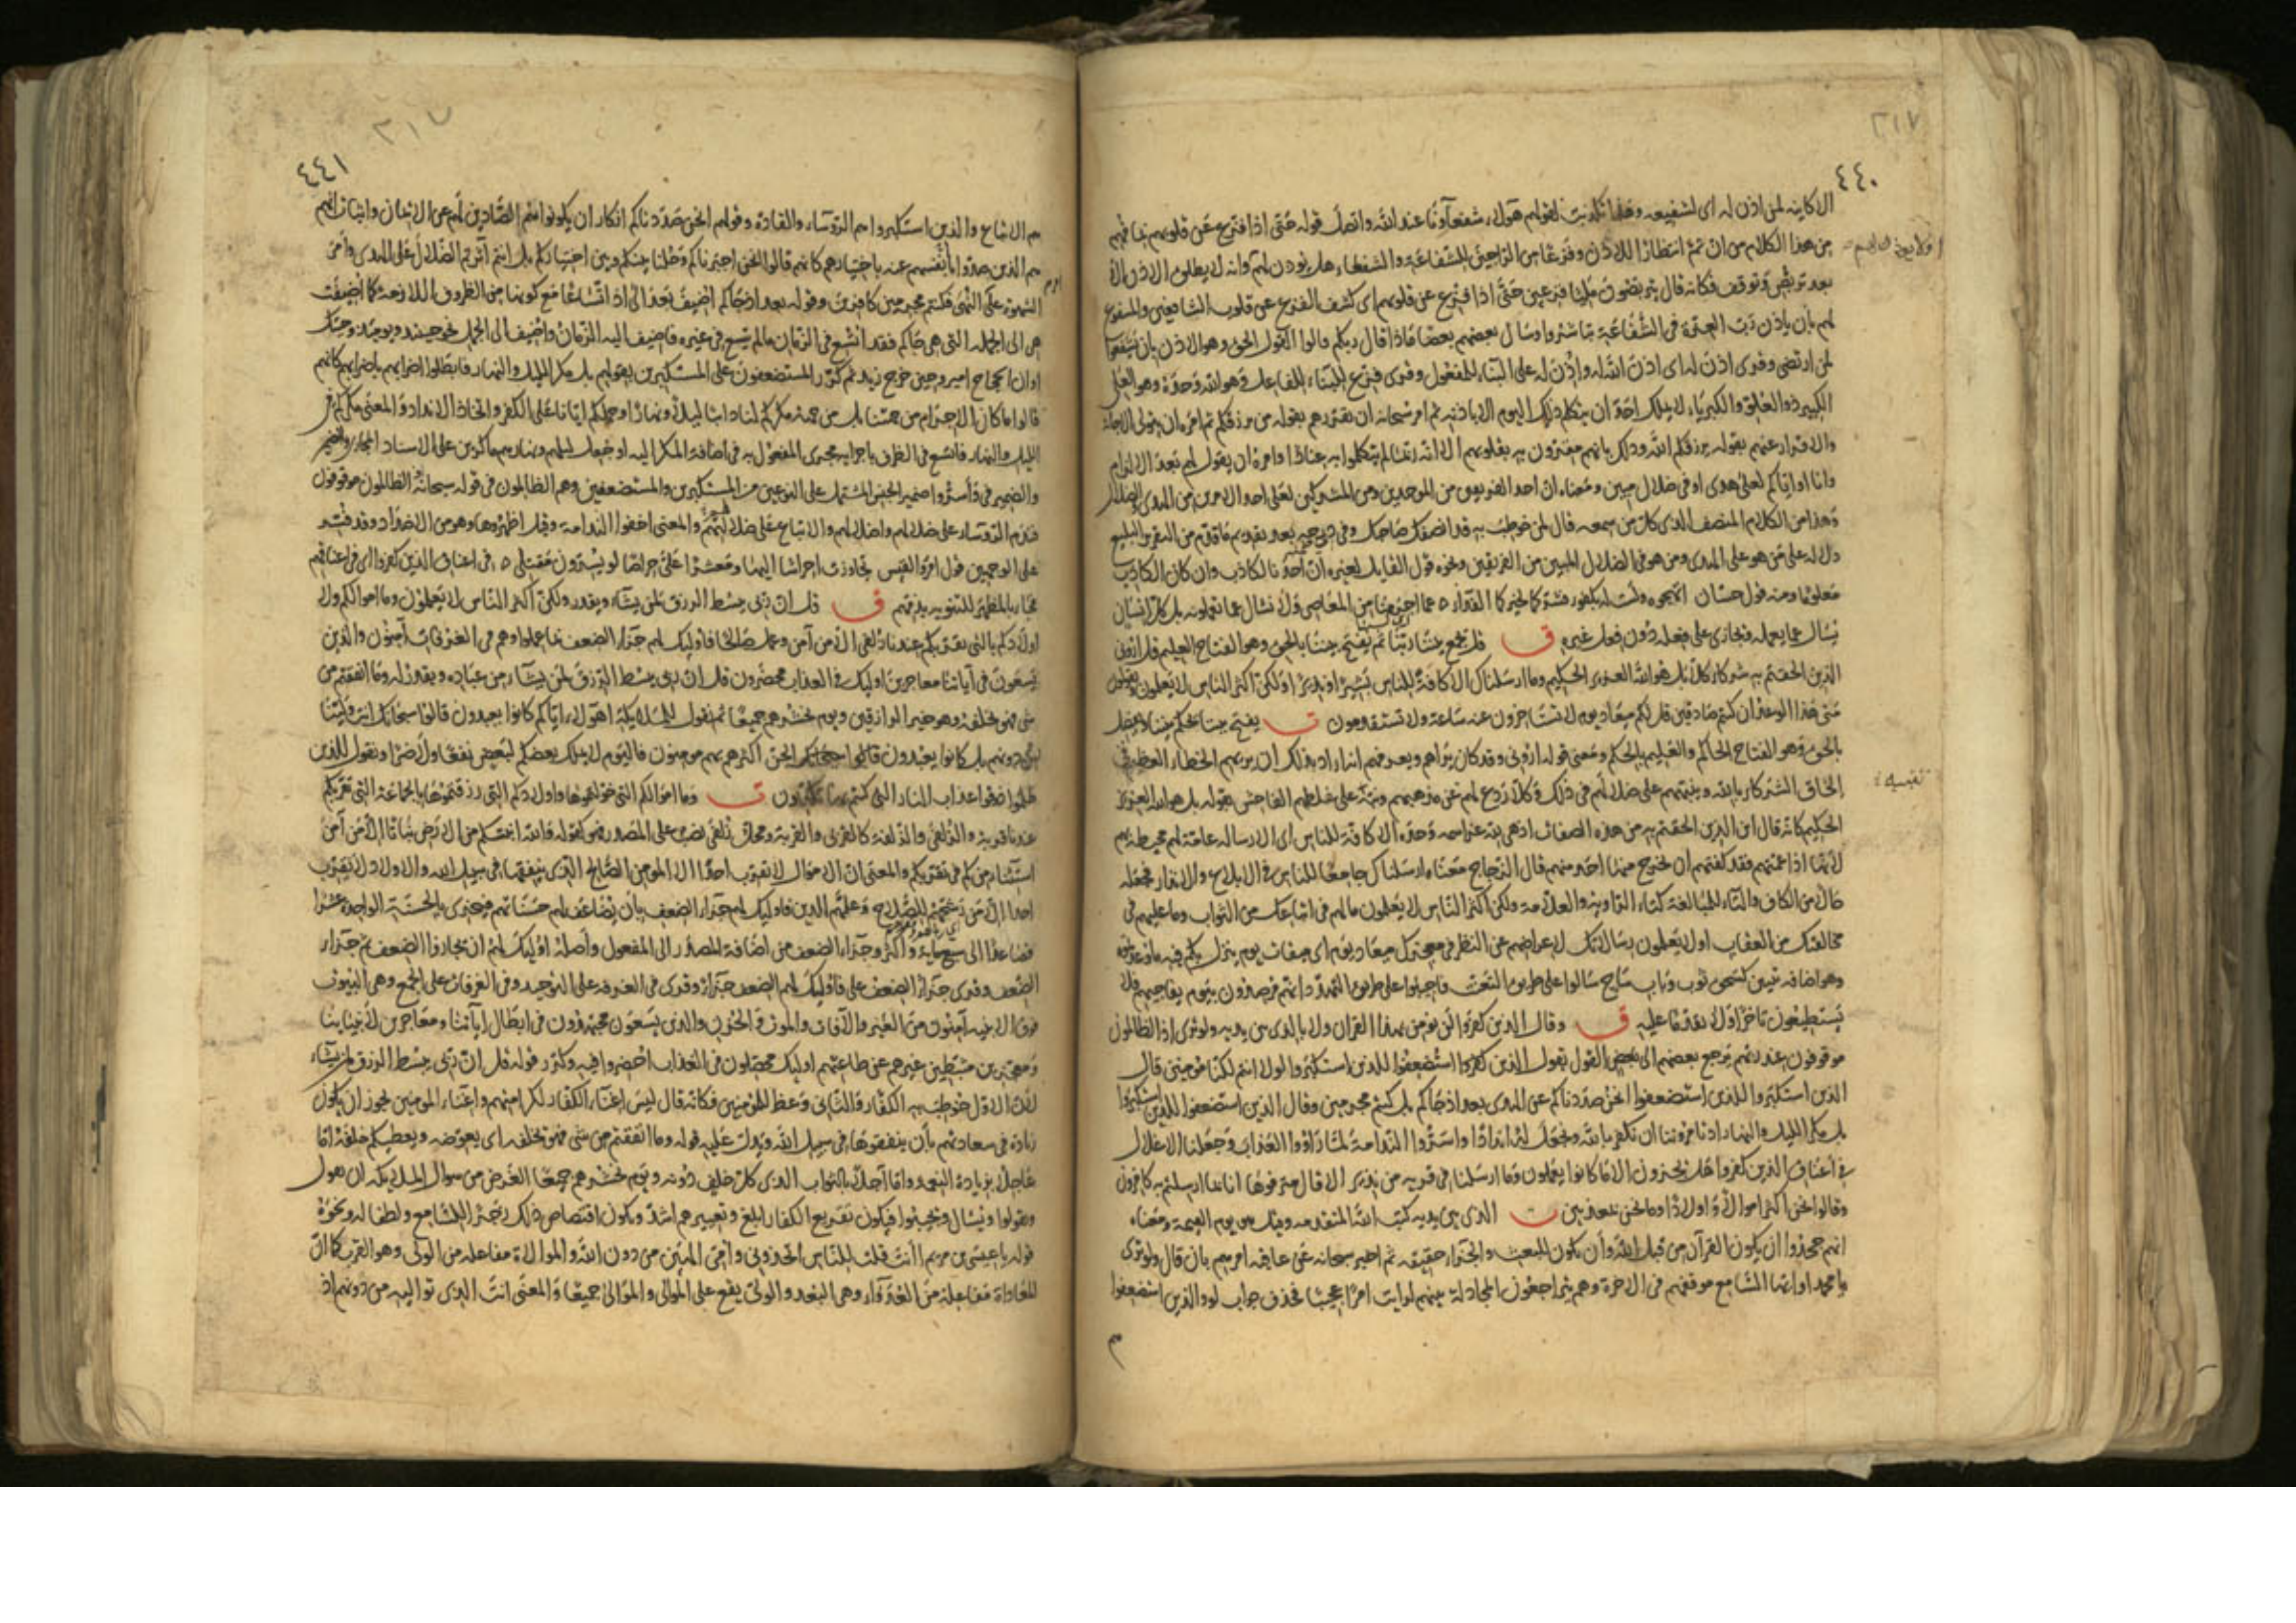 ٢١٧
٤٤٠
الا كاينه لمن اذن له اى لشفيعه وهذا تكذيب لقولهم هؤلاء شفعاؤنا عند الله واتصل قوله حتى اذا فزع عن قلوبهم بما فهم
من هذا الكلام من ان ثم انتظارا للاذن وفزعا من الراجين للشفاعة والشفعاء هل يوذن لهم وانه لا يطلق الاذن الا
بعد تربص وتوقف فكانه قال يتربصون مليا فزعين حتى اذا فزع عن قلوبهم اى كشف الفزع عن قلوب الشافعين والمشفوع
لهم بان ياذن رب العزة فى الشفاعة تباشروا وسال بعضهم بعضا ماذا قال ربكم قالوا القول الحق وهو الاذن بان يشفعوا
لمن ارتضى وقرى اذن له اى اذن الله له واذن له على البناء للمفعول وقرى فزع للبناء للفاعل وهو الله وحده وهو العلى
الكبير ذو العلو والكبرياء لا يملك احد ان يتكلم ذلك اليوم الا باذنه ثم امر سبحانه ان يقررهم بقوله من يرزقكم ثم امره ان يتولى الاجابة
والاقرار عنهم بقوله يرزقكم الله وذلك بانهم مقرون به بقلوبهم الا انه ربما لم يتكلموا به عنادا وامره ان يقول لهم بعد الالزام
وانا او اياكم لعلى هدى او فى ضلال مبين ومعناه ان احد الفريقين من الموحدين ومن المشركين لعلى احد الامرين من الهدى والضلال
وهذا من الكلام المنصف الذى كل من سمعه قال لمن خوطب به قد انصفك صاحبك وفى درجه بعد تقديم ما قدم من التقرير البليغ
دلالة على من هو على الهدى ومن هو فى الضلال المبين من الفريقين ونحوه قول القايل لغيره ان احدنا لكاذب وان كان الكاذب
معلوما ومنه قول حسان اتهجوه ولست له بكفو فشركما لخيركما الفداء عما اجرمنا من المعاصى ولا نسال عما تعملونه بل كل انسان
يسال عما يعمله ويجازى على فعله دون فعل غيره ق قل يجمع بيننا ربنا ثم يفتح بيننا بالحق وهو الفتاح العليم قل ارونى
الذين الحقتم به شركاء كلا بل هو الله العزيز الحكيم وما ارسلناك الا كافة للناس بشيرا ونذيرا ولكن اكثر الناس لا يعلمون ويقولون
متى هذا الوعد ان كنتم صادقين قل لكم ميعاد يوم لا تستاخرون عنه ساعة ولا تستقدمون ت يفتح بيننا يحكم بيننا ويفصل
بالحق وهو الفتاح الحاكم والعليم بالحكم ومعنى قوله ارونى وقد كان يراهم ويعرفهم انه اراد بذلك ان يريهم الخطاء العظيم فى
الحاق الشركاء بالله وينبههم على ضلالهم فى ذلك وكلا ردع لهم عن مذهبهم ونبه على غلطهم الفاحش بقوله بل هو الله العزيز
الحكيم كانه قال اين الذين الحقتم به من هذه الصفات اذ هى لله عز اسمه وحده الا كافة للناس اى الا رسالة عامة لهم محيطة بهم
لانها اذا عمتهم فقد كفتهم ان يخرج منها احد منهم قال الزجاج معناه ارسلناك جامعا للناس فى الابلاغ والانذار فجعله
حالا من الكاف والتاء للمبالغة كتاء الراوية والعلامة ولكن اكثر الناس لا يعلمون ما لهم فى اتباعك من الثواب وما عليهم فى
مخالفتك من العقاب او لا يعلمون رسالتك لاعراضهم عن النظر فى معجزتك ميعاد يوم اى ميقات يوم ينزل بكم فيه ما توعدونه
وهو اضافة تبيين كسحق ثوب وباب ساج سالوا على طريق التعنت فاجيبوا على طريق التهدد انهم مرصدون بيوم يفاجيهم فلا
يستطيعون تاخرا ولا تقدما عليه ق وقال الذين كفروا لن نومن بهذا القران ولا بالذى بين يديه ولو ترى اذ الظالمون
موقوفون عند ربهم يرجع بعضهم الى بعض القول يقول الذين استضعفوا للذين استكبروا لولا انتم لكنا مومنين قال
الذين استكبروا للذين استضعفوا انحن صددناكم عن الهدى بعد اذ جاءكم بل كنتم مجرمين وقال الذين استضعفوا للذين استكبروا
بل مكر الليل والنهار اذ تامروننا ان نكفر بالله ونجعل له اندادا واسروا الندامة لما راوا العذاب وجعلنا الاغلال
فى اعناق الذين كفروا هل يجزون الا ما كانوا يعملون وما ارسلنا فى قرية من نذير الا قال مترفوها انا بما ارسلتم به كافرون
وقالوا نحن اكثر اموالا واولادا وما نحن بمعذبين ت الذى بين يديه كتب الله المتقدمة وقيل هو يوم القيمة ومعناه
انهم جحدوا ان يكون القرآن من قبل الله وان يكون للبعث والجزاء حقيقة ثم اخبر سبحانه عن عاقبة امرهم بان قال ولو ترى
يا محمد او ايها السامع موقفهم فى الاخرة وهم يتراجعون المجادلة بينهم لرايت امرا عجيبا فحذف جواب لو والذين استضعفوا
تفسيه
٢١٧
٤٤١
هم الاتباع والذين استكبروا هم الروساء والقادة وقولهم انحن صددناكم انكار ان يكونوا هم الصادين لهم عن الايمان واثبات انهم
هم الذين صدوا بانفسهم عنه باختيارهم كانهم قالوا انحن اجبرناكم وحلنا بينكم وبين اختياركم بل انتم آثرتم الضلال على الهدى وامر
الشهوة على النهى فكنتم مجرمين كافرين وقوله بعد اذ جاءكم اضيف بعد الى اذ اتساعا مع كونها من الظروف اللازمة كما اضيفت
هى الى الجملة التى هى جاءكم فقد اتسع فى الزمان ما لم يتسع فى غيره فاضيف اليه الزمان واضيف الى الجمل نحو حينئذ ويومئذ وجئتك
اوان الحجاج امير وحين خرج زيد ثم كرر المستضعفون على المستكبرين بقولهم بل مكر الليل والنهار فابطلوا اضرابهم باضرابهم كانهم
قالوا ما كان الاجرام من جهتنا بل من جهة مكركم لنا دايبا ليلا ونهارا وحملكم ايانا على الكفر واتخاذ الانداد والمعنى مكركم فى
الليل والنهار فاتسع فى الظرف باجرايه مجرى المفعول به فى اضافة المكر اليه او جعل ليلهم ونهارهم ماكرين على الاسناد المجازى
والضمير فى واسروا ضمير الجنس المشتمل على النوعين من المستكبرين والمستضعفين وهم الظالمون فى قوله سبحانه اذ الظالمون موقوفون
فندم الروساء على ضلالهم واضلالهم والاتباع على ضلالهم والمعنى اخفوا الندامة وقيل اظهروها وهو من الاضداد وقد فسر
على الوجهين قول امرؤ القيس تجاوزت احراسا اليها ومعشرا على حراصا لو يسرون مقتلى فى اعناق الذين كفروا اى فى اعناقهم
فجاء بالمظهر للتنويه بذمهم ق قل ان ربى يبسط الرزق لمن يشاء ويقدر ولكن اكثر الناس لا يعلمون وما اموالكم ولا
اولادكم بالتى تقربكم عندنا زلفى الا من آمن وعمل صالحا فاوليك لهم جزاء الضعف بما عملوا وهم فى الغرفات آمنون والذين
يسعون فى آياتنا معاجزين اوليك فى العذاب محضرون قل ان ربى يبسط الرزق لمن يشاء من عباده ويقدر له وما انفقتم من
شى فهو يخلفه وهو خير الرازقين ويوم نحشرهم جميعا ثم نقول للملايكة اهؤلاء اياكم كانوا يعبدون قالوا سبحانك انت ولينا
من دونهم بل كانوا يعبدون الجن اكثرهم بهم مومنون فاليوم لا يملك بعضكم لبعض نفعا ولا ضرا ونقول للذين
ظلموا ذوقوا عذاب النار التى كنتم بها تكذبون ت وما اموالكم التى خولتموها واولادكم التى رزقتموها بالجماعة التى تقربكم
عندنا قربة والزلفى والزلفة كالقربى والقربة ومحل زلفى نصب على المصدر فهو كقوله والله انبتكم من الارض نباتا الا من آمن
استثناء من كم فى تقربكم والمعنى ان الاموال لا تقرب احدا الا المومن الصالح الذى ينفقها فى سبيل الله والاولاد لا تقرب
احدا الا من رشحهم للصلاح وعلمهم الدين فاوليك لهم جزاء الضعف بان يضاعف لهم حسناتهم فيجزى بالحسنة الواحدة عشرا
فصاعدا الى سبع ماية واكثر وجزاء الضعف من اضافة المصدر الى المفعول واصله اوليك لهم ان يجازوا الضعف ثم جزاء
الضعف وقرى جزاء الضعف على فاوليك لهم الضعف جزاء وقرى فى الغرفة على التوحيد وفى الغرفات على الجمع وهى البيوت
فوق الابنية آمنون من الغير والآفات والموت والحزن والذين يسعون يجتهدون فى ابطال آياتنا ومعاجزين لانبيائنا
ومعجزين مثبطين غيرهم عن طاعتهم اوليك محصلون فى العذاب احضروا فيه وكرر قوله قل ان ربى يبسط الرزق لمن يشاء
لان الاول خوطب به الكفار والثانى وعظ للمومنين فكانه قال ليس اغناء الكفار لكرامتهم واغناء المومنين يجوز ان يكون
زيادة فى سعادتهم بان ينفقوها فى سبيل الله ويدل عليه قوله وما انفقتم من شى فهو يخلفه اى يعوضه ويعطيكم خلفه اما
عاجلا بزيادة النعمة واما آجلا بالثواب الذى كل خلف دونه ويوم نحشرهم جميعا الغرض من سوال الملايكة ان يقول
ويقولوا ويسال ويجيبوا فيكون تقريع الكفار ابلغ وتعييرهم اشد ويكون اقتصاص ذلك زجرا للسامع ولطفا له ونحوه
قوله يا عيسى بن مريم اانت قلت للناس اتخذونى وامى الهين من دون الله والموالاة مفاعلة من الولى وهو القرب كما ان
المعاداة مفاعلة من العدواء وهى البعد والولى يقع على الموالى والموالى جميعا والمعنى انت الذى نواليه من دونهم اذ